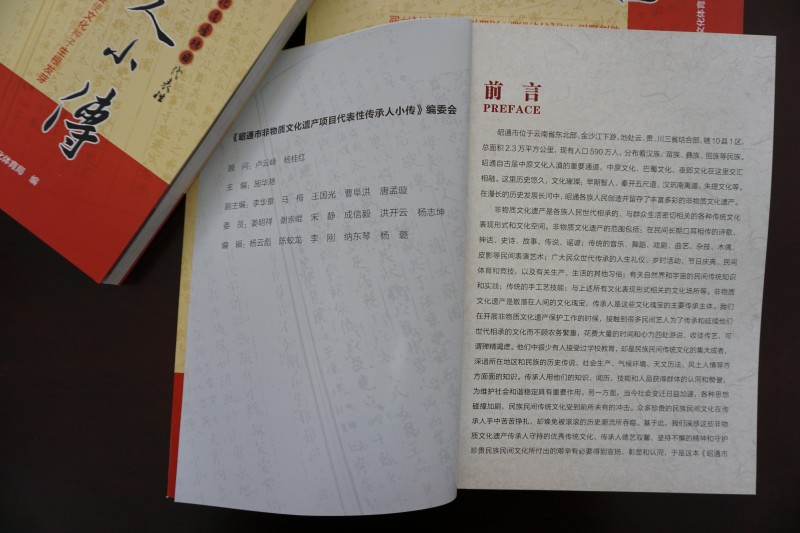 人小傳
代表性
化体育局 编
《昭通市非物质文化遗产项目代表性传承人小传》编委会
顾 问：卢云峰 杨桂红
主 编：施华慧
副主编：李华章 马 梅 王国光 曹阜洪 唐孟璇
委 员：姜明祥 谢崇崐 宋 静 成信毅 洪开云 杨志坤
编 辑：杨云彪 陈蛟龙 李 刚 纳东琴 杨 璐
前言
PREFACE
昭通市位于云南省东北部、金沙江下游，地处云、贵、川三省结合部，辖10县1区，
总面积2.3万平方公里，现有人口590万人，分布着汉族、苗族、彝族、回族等民族。
昭通自古是中原文化入滇的重要通道，中原文化、巴蜀文化、夜郎文化在这里交汇
相融。这里历史悠久，文化璀璨：早期智人、秦开五尺道、汉筑南夷道、朱提文化等。
在漫长的历史发展长河中，昭通各族人民创造并留存了丰富多彩的非物质文化遗产。
非物质文化遗产是各族人民世代相承的、与群众生活密切相关的各种传统文化
表现形式和文化空间。非物质文化遗产的范围包括：在民间长期口耳相传的诗歌、
神话、史诗、故事、传说、谣谚；传统的音乐、舞蹈、戏剧、曲艺、杂技、木偶、
皮影等民间表演艺术；广大民众世代传承的人生礼仪、岁时活动、节日庆典、民间
体育和竞技，以及有关生产、生活的其他习俗；有关自然界和宇宙的民间传统知识
和实践；传统的手工艺技能；与上述所有文化表现形式相关的文化场所等。非物质
文化遗产是散落在人间的文化瑰宝，传承人是这些文化瑰宝的主要传承主体。我们
在开展非物质文化遗产保护工作的时候，接触到很多民间艺人为了传承和延续他们
世代相承的文化而不顾农务繁重，花费大量的时间和心力四处游说、收徒传艺，可
谓殚精竭虑。他们中很少有人接受过学校教育，却是民族民间传统文化的集大成者，
深谙所在地区和民族的历史传说、社会生产、气候环境、天文历法、风土人情等方
方面面的知识。传承人用他们的知识、阅历、技能和人品获得群体的认同和赞誉，
为维护社会和谐稳定具有重要作用，另一方面，当今社会变迁日益加速，各种思想
碰撞加剧，民族民间传统文化受到前所未有的冲击。众多珍贵的民族民间文化在传
承人手中苦苦挣扎，却难免被滚滚的历史潮流所吞噬。基于此，我们深感这些非物
质文化遗产传承人守持的优秀传统文化、传承人德艺双馨、坚持不懈的精神和守护
珍贵民族民间文化所付出的艰辛有必要得到宣扬、彰显和认同，于是这本《昭通市